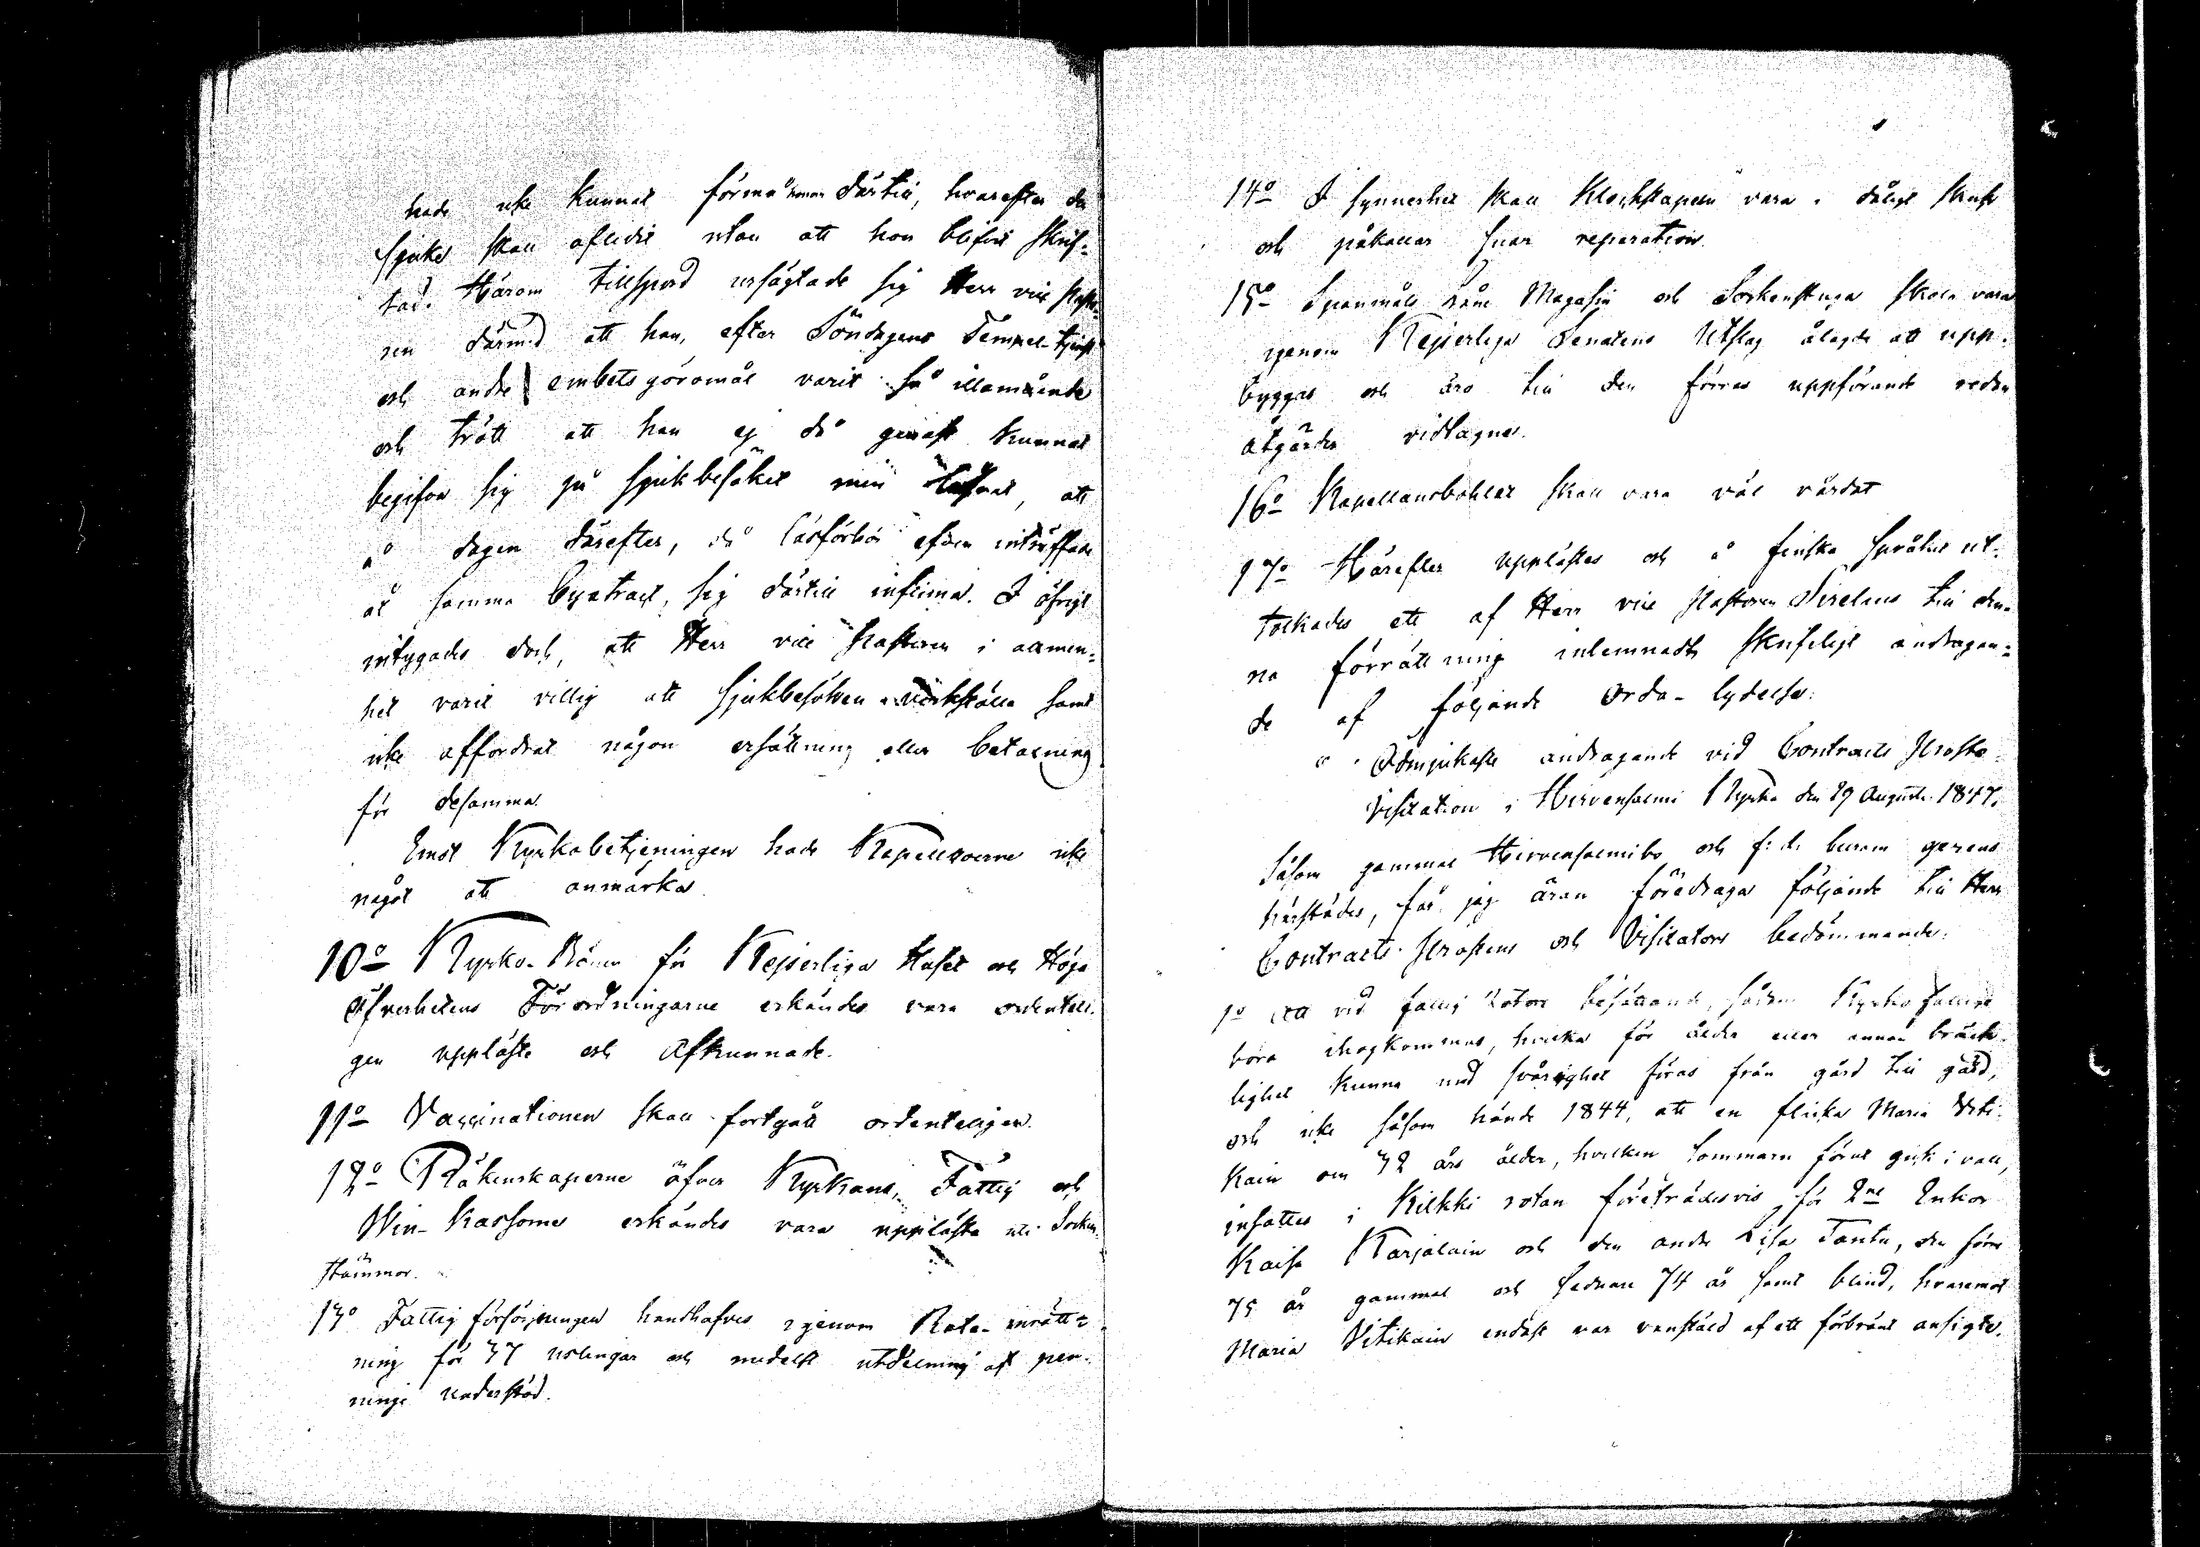 hade icke kunnat förmå honom därtill, hvarefter den
sjuke skall aflidit utan att hon blifvit skrif-
tad. Härom tillspord ursägtade sig Herr vice Pasto-
ren därmed att han, efter Söndagens Tempel-tjenst
och andre embetsgöromål varit så illamående
och trött att han ej då genast kunnat
begifva sig på sjukbesöket men lofvat, att
å dagen därefter, då läsförhör äfven inträffade
åt samma bytract, sig därtill infinna. I öfrigt
intygades doch, att Herr vice Pastoren i allmän-
het varit villig att sjukbesöken värkställa samt
icke affordrat någon ersättning eller betalning
för desamma.
Emot Kyrkobetjeningen hade Kapellboerne icke
något att anmärka.
10o Kyrko-Böner för Kejserliga Huset och Höga
Öfverhetens Förordningarne erkändes vara ordenteli-
gen uppläste och afkunnade.
11o Vaccinationen skall fortgått ordenteligen.
12o Räkenskaperne öfver Kyrkans, Fattig och
Win-Kassorne erkändes vara uppläste uti Socken-
stämmor.
13o Fattig försörjningen handhafves igenom Rote-inrätt-
ning för 37 uslingar och medelst utdelning af pen-
ninge understöd.
14o I synnerhet skall Klockstapeln vara i dåligt skick
och påkallar snar reparation.
15o Spanmåls Låne Magasin och Sockenstuga skola vara
genom Kejserliga Senatens Utslag ålagde att upp-
byggas och äro till den förras uppförande redan
åtgärder vidtagne.
16o Kapellansbohlet skall vara väl vårdat
17o Härefter upplästes och å finska språket ut-
tolkades ett af Herr vice Pastoren Sirelius till den-
na förrättning inlemnadt skriftligt andragan-
de af följande Orda-lydelse:
" Ödmjukaste andragande vid Contracts Prosts-
Visitation i Hirvensalmi Kyrka den 29 Augusti 1847.
Såsom gammal Hirvensalmibo och
härstädes, får jag äran föredraga följande till Herr
Contracts Prostens och Visitators bedömmande:
1o Att vid fattig Rotors besättande, sådane Kyrko fattige
böra ihogkommas, hvilka för ålder eller annan bräck-
lighet kunna med svårighet föras från gård till gård,
och icke såsom hände 1844, att en flicka Maria Viti-
kain om 32 års ålder, hvilken sommarn förut gick i vall,
insattes i Kilkki rotan företrädesvis för 2ne Enkor
Kaisa Karjalain och den andra Lisa Tantu, den förra
75 år gammal och sednare 74 år samt blind, hvaremot
Maria Vitikain endast var vanställd af ett förbrändt ansigte.